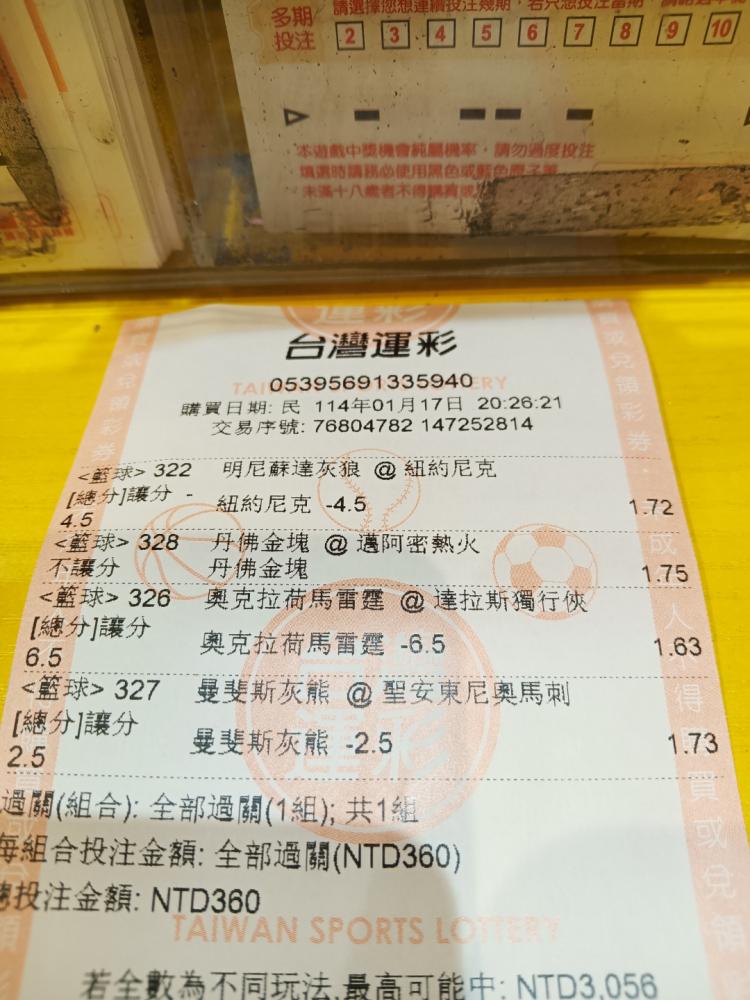 多期
投注
請選擇您想連續投注幾期，若只想投注當期，
2 3 4 5 6 7 8 9 10
本遊戲中獎機會純屬機率，請勿過度投注
填選時請務必使用黑色或藍色原子筆
未滿十八歲者不得購買或
運彩
台灣運彩
TAIWAN SPORTS LOTTERY
05395691335940
購買日期: 民 114年01月17日 20:26:21
交易序號: 76804782 147252814
<籃球> 322 明尼蘇達灰狼 @ 紐約尼克
[總分]讓分 -
4.5
紐約尼克 -4.5 1.72
<籃球> 328 丹佛金塊 @ 邁阿密熱火
不讓分 丹佛金塊 1.75
<籃球> 326 奧克拉荷馬雷霆 @ 達拉斯獨行俠
[總分]讓分
6.5
奧克拉荷馬雷霆 -6.5 1.63
<籃球> 327 曼斐斯灰熊 @ 聖安東尼奧馬刺
[總分]讓分
2.5
曼斐斯灰熊 -2.5 1.73
過關(組合): 全部過關(1組); 共1組
每組合投注金額: 全部過關(NTD360)
總投注金額: NTD360
TAIWAN SPORTS LOTTERY
若全數為不同玩法,最高可能中: NTD3,056